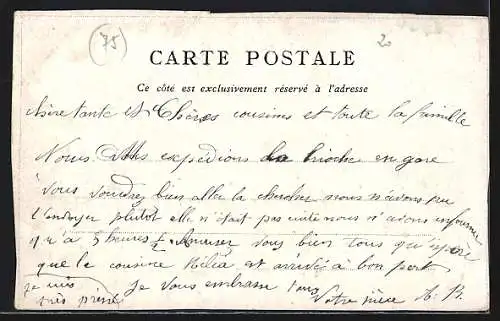 (75)
CARTE POSTALE
Ce côté est exclusivement réservé à l'adresse
chère tante et Chères cousines et toute la famille
Nous expédions la brioche en gare
vous voudrez bien aller la chercher nous n'avons pu
l'envoyer plutot elle n'était pas cuite nous n'avons enfourner
qu'a 5 heures ½ Amuser vous bien tous qu'
que le cousine est arrivée à bon port
je suis très pressé Je vous embrasse tous
Votre nièce A. B.